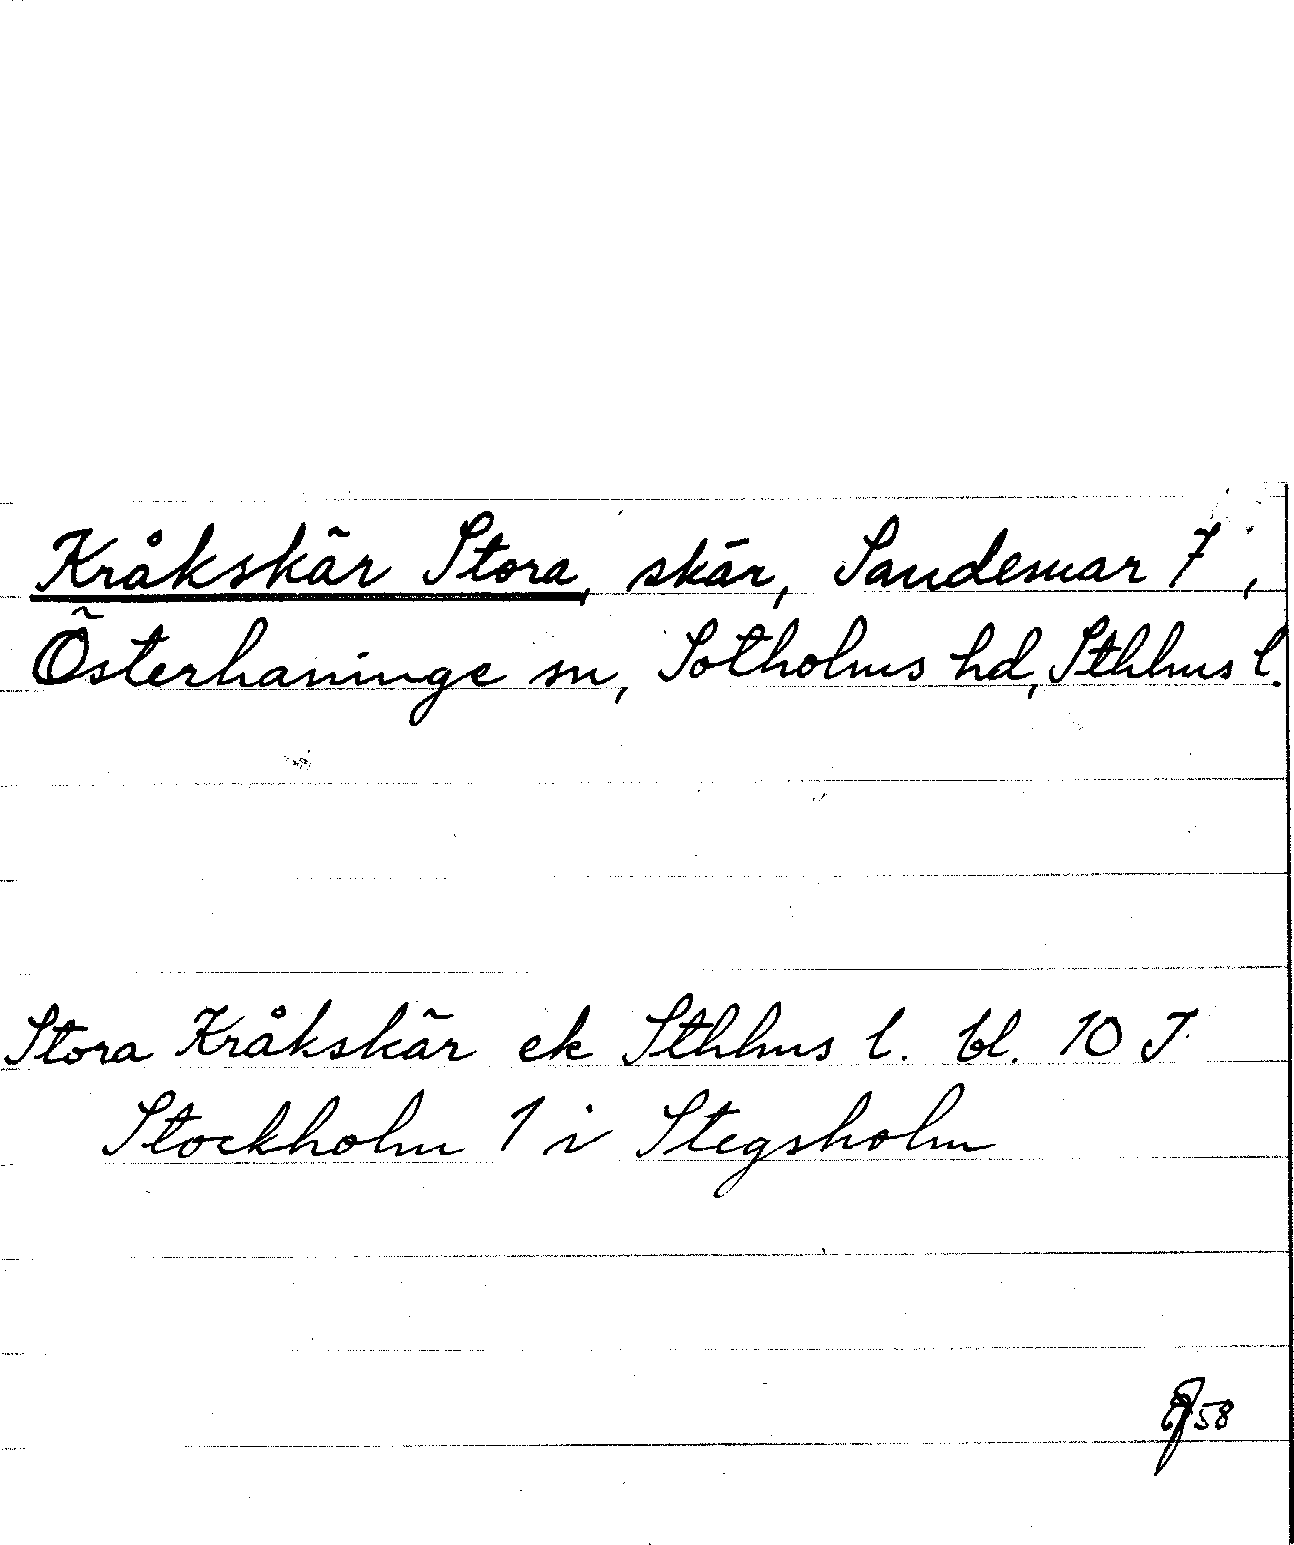 Kråkskär Stora, skär, Sandemar 7,
Österhaninge sn, Sotholms hd, Sthlms l.
Stora Kråkskär ek Sthlms l. bl. 10 J
Stockholm 1 i Stegsholm
58